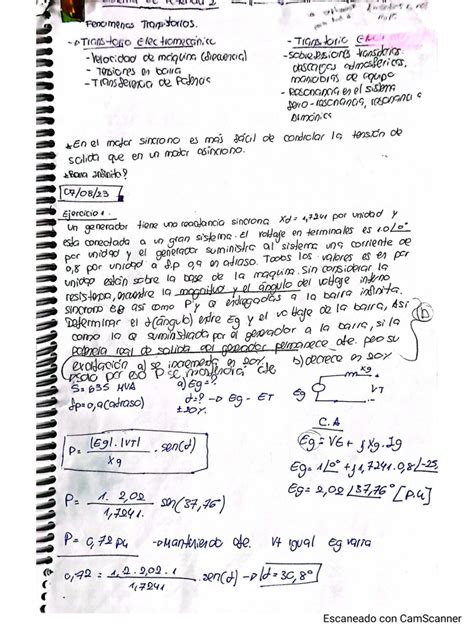 Fenómenos Transitorios.
-> Transitorio Electromecánico
- Velocidad de máquina (frecuencia)
- Tensiones en barra
- Transferencia de Potencia
- Transitorio
- Sobretensiones transitorias
descargas atmosféricas,
maniobras de equipo
- Resonancia en el sistema
ferro-resonancia, resonancia
Armónica
* En el motor síncrono es más fácil de controlar la tensión de
salida que en un motor asíncrono.
* Barra infinita?
07/08/23
Ejercicio 1.
Un generador tiene una reactancia síncrona Xd = 1,7241 por unidad y
está conectada a un gran sistema. El voltaje en terminales es 1.0∠0°
por unidad y el generador suministra al sistema una corriente de
0,8 por unidad a f.p 0,9 en atraso. Todos los valores es en por
unidad están sobre la base de la máquina. Sin considerar la
resistencia, encuentre la magnitud y el ángulo del voltaje interno
síncrono Eg así como P y Q entregadas a la barra infinita.
Determinar el δ (ángulo) entre Eg y el voltaje de la barra, Así
como la Q suministrada por el generador a la barra, si la
potencia real de salida del generador permanece cte. pero su
excitación a) se incrementa en 20% b) decrece en 20%
S = 635 MVA
fp = 0,9 (atraso)
a) Eg = ?
δ = ? -> Eg - ET
± 20%.
Xg
Eg
VT
C.A
P = |Eg|.|VT| / Xg . sen(δ)
Eg = Vt + j Xg . Ig
Eg = 1∠0° + j 1,7241 . 0,8∠-25
P = 1. 2,02 / 1,7241. sen(37,76°)
Eg = 2,02 ∠37,76° [P.u]
P = 0,72 pu -> Manteniendo cte. Vt igual Eg varia
0,72 = 1,2 . 2,02 . 1 / 1,7241 . sen(δ) -> δ = 30,8°
Escaneado con CamScanner